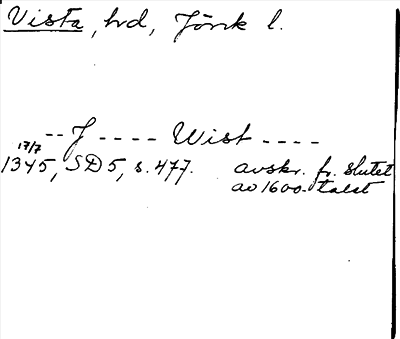 Vista, hd, Jönk l.
-- J ---- Wist ----
17/7
1345, SD 5, s. 477. avskr. fr. slutet
av 1600-talet